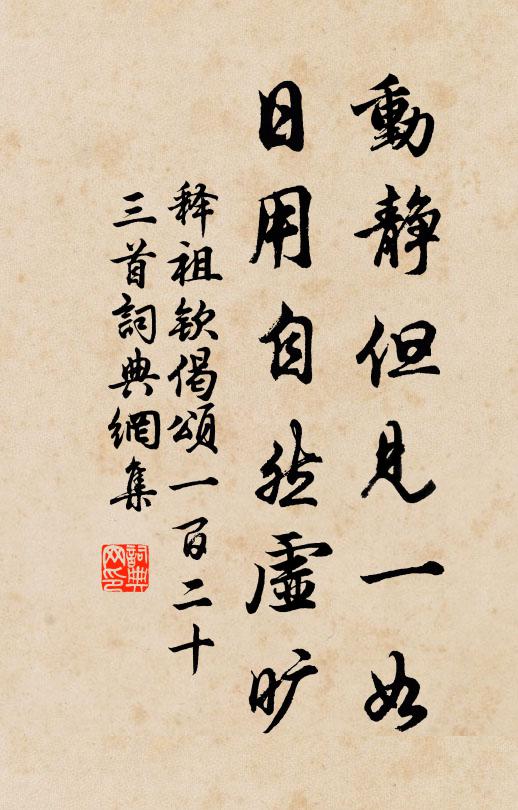 動静但見一如
日用自然虛旷
释祖欽偈頌一百二十
三首詞典網集
詞典網印